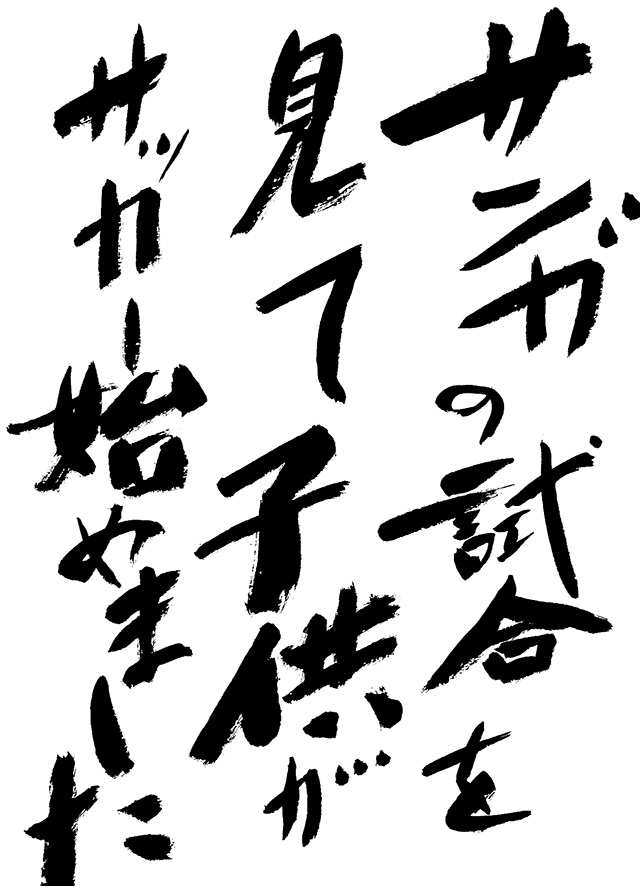 サンガの試合を
見て子供が
サッカー始めました